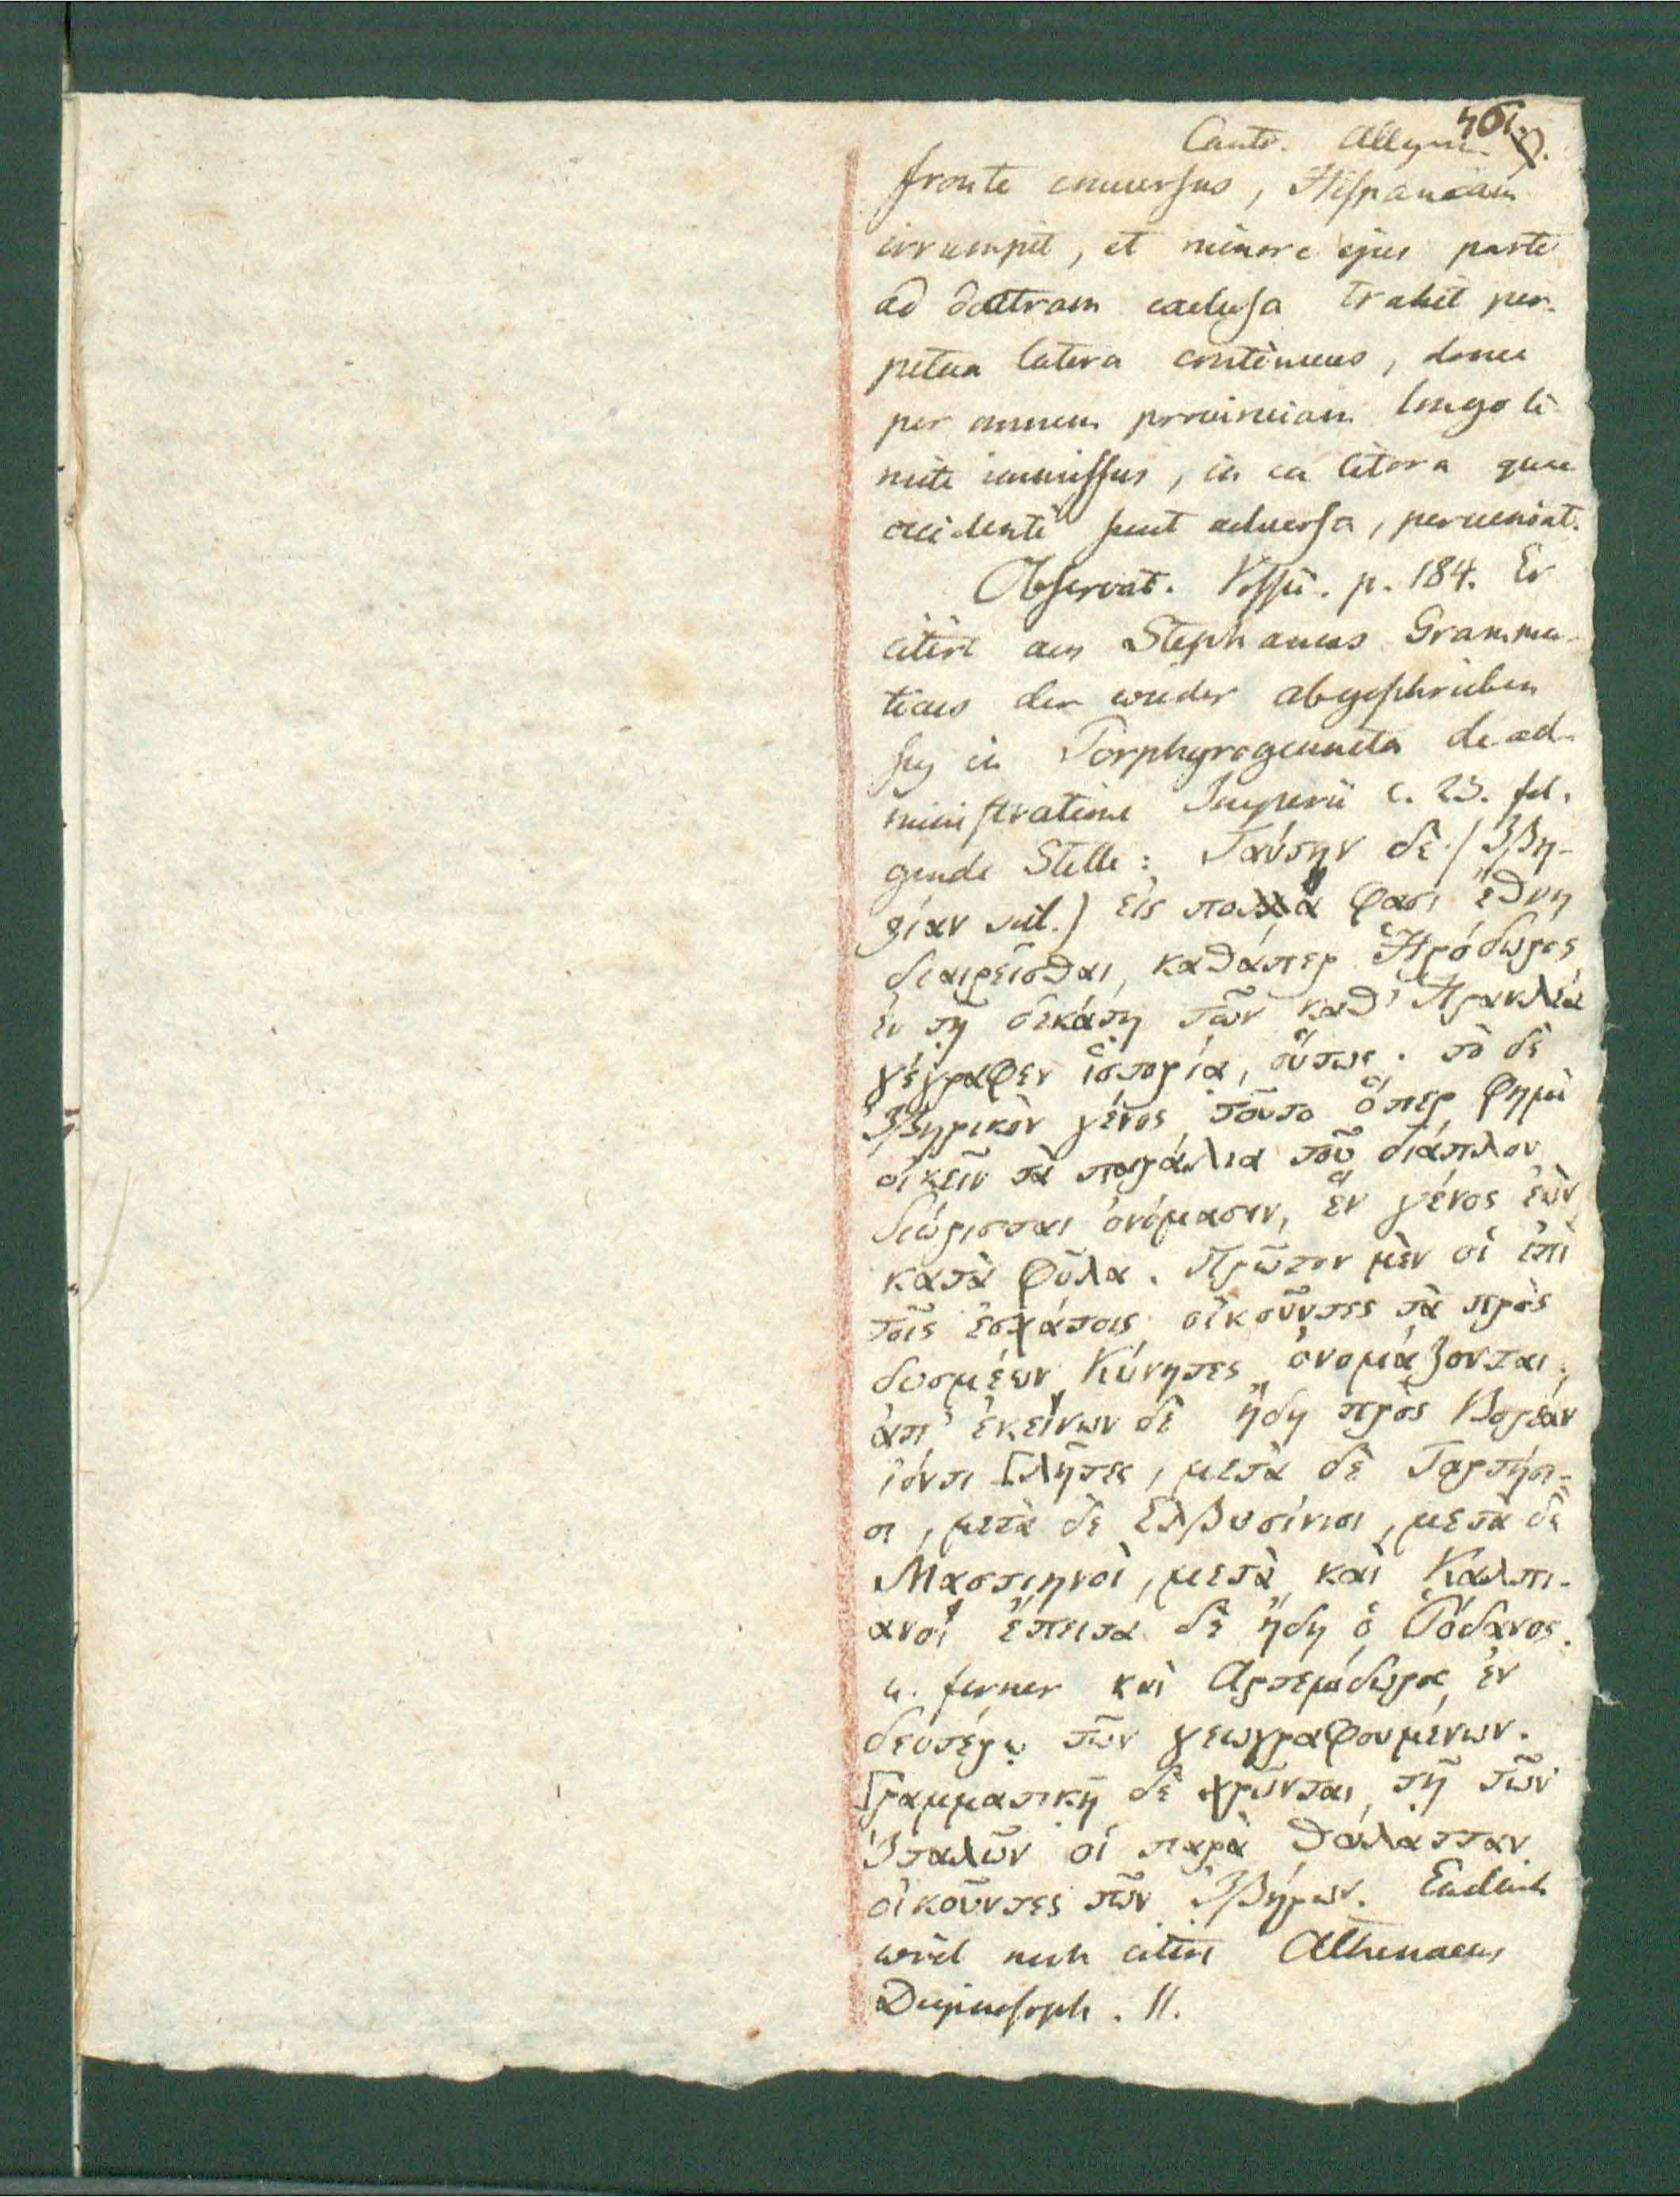 461.
Cant. Allgem.
fronte conversus, Hispaniam
irrumpit, et minore ejus parte
ad dextram exclusa trahit per-
petua latera continuus, donec
per omnem provinciam longo li-
mite immissus, in ea litora quae
occidenti sunt adversa, perveniat.
Observat. Vossii. p. 184. Er
citirt aus Stephanus Gramma-
ticus der wieder abgeschrieben
sey in Porphyrogenneta de ad-
ministratione Imperii c. 23. fol-
gende Stelle: Ταύτην δὲ (Ἰβη-
ρίαν scil.) εἰς πολλά φασι ἔθνη
διαιρεῖσθαι, καθάπερ Ἡρόδωρος
ἐν τῇ δεκάτῃ τῶν καθ' Ἡρακλέα
γέγραφεν ἱστορία, οὕτως. τὸ δὲ
Ἰβηρικὸν γένος τοῦτο ὅπερ φημὶ
οἰκεῖν τὰ παράλια τοῦ διάπλου
διώρισται ὀνόμασιν, ἓν γένος ἐὸν
κατὰ φῦλα. Πρῶτον μὲν οἱ ἐπὶ
τοῖς ἐσχάτοις οἰκοῦντες τὰ πρὸς
δυσμέων Κύνητες ὀνομάζονται.
ἀπ' ἐκείνων δὲ ἤδη πρὸς Βορέαν
ἰόντι Γλῆτες, μετὰ δὲ Ταρτήσι-
οι, μετὰ δὲ Ελβυσίνιοι, μετὰ δὲ
Μαστιηνοὶ, μετὰ καὶ Καλπι-
ανοί ἔπειτα δὲ ἤδη ὁ Ῥόδανος.
u. ferner καὶ Αρτεμιδωρος ἐν
δευτέρῳ τῶν γεωγραφουμένων.
Γραμματικῇ δὲ χρῶνται τῇ τῶν
Ἰταλῶν οἱ παρὰ θάλατταν
οἰκοῦντες τῶν Ἰβήρων. Endlich
wird noch citirt Athenaeus
Deipnosoph. II.